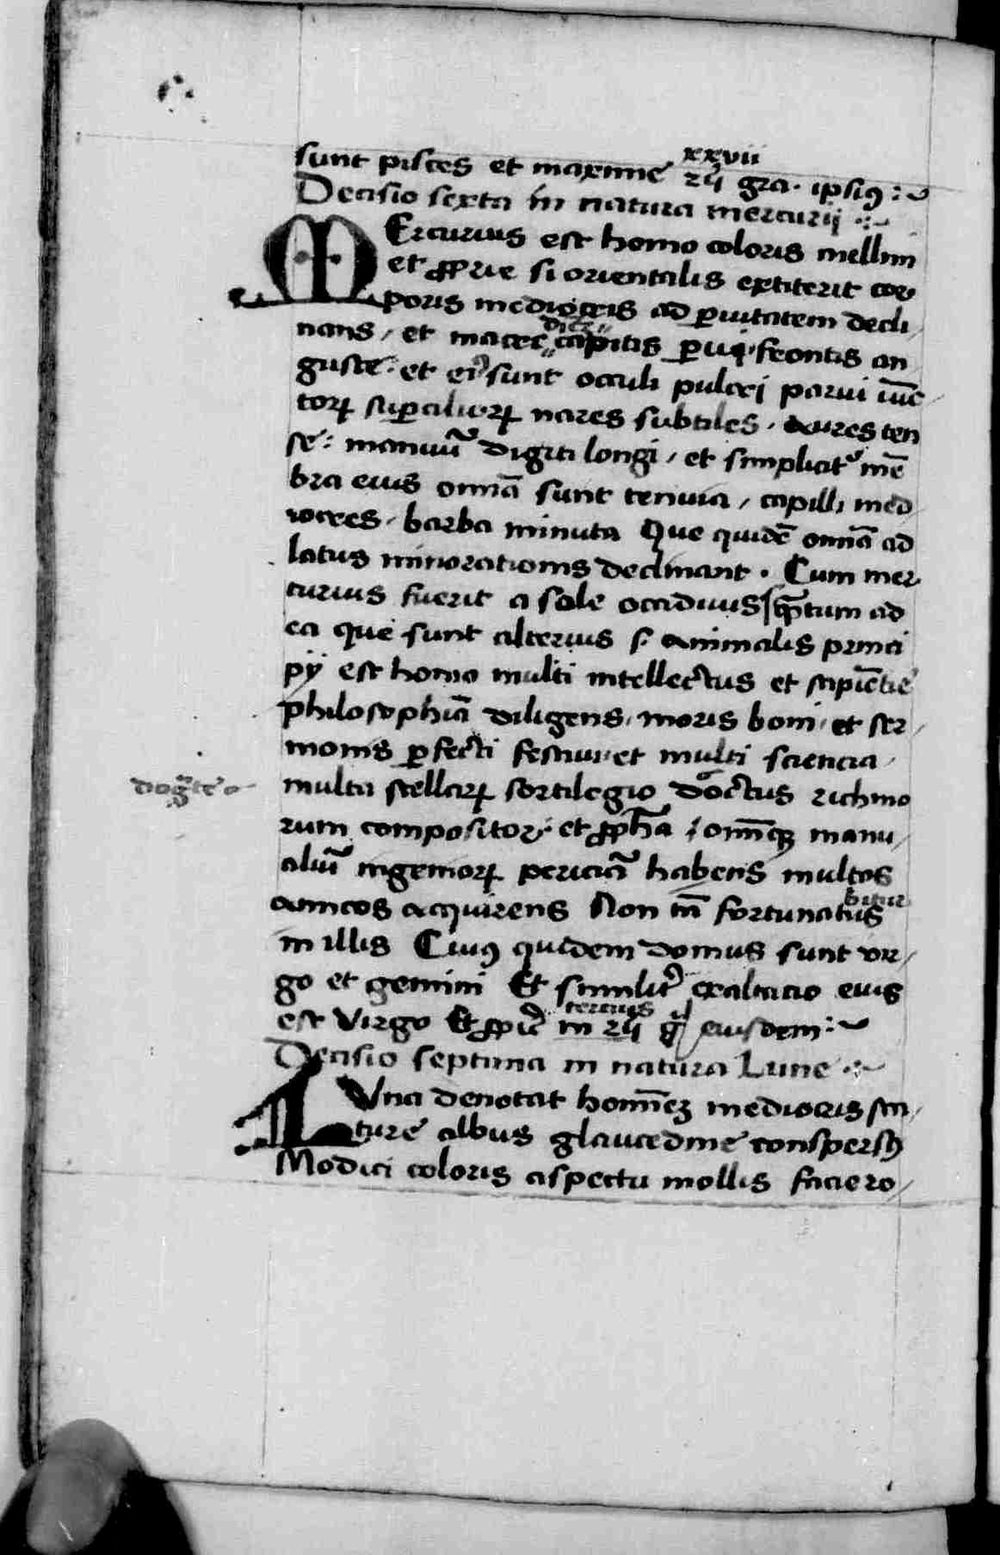 xxvii
sunt pisces et maxime 27 gra. ipsiꝰ :~
Decisio sexta in natura mercurij :~
MErcurius est homo coloris mellini
et ꝓprie si orientalis extiterit cor
poris mediocris ad ꝑuitatem decli
nans / et macre capitis ꝑui frontis an
guste : et eiꝰ sunt occuli pulcri parui iūc
toꝝ suꝑcilioꝝ nares subtiles . aures ten
se : manuū digiti longi / et simplicitᵉʳ mē
bra eius omīa sunt tenuia / capilli med
iocres . barba minuta Que quidē omīa ad
latus minorationis declinant . Cum mer
curius fuerit a sole occiduus quātum ad
ea que sunt alterius s. animalis princi
pij est homo multi intellectus et sapiētie
philosophiā diligens . moris boni . et ser
monis ꝑfecti festiui et multi sciencia
multa stellaꝝ sortilegio doctus richmo
rum compositor . et ꝓpħa / omīqꝫ manu
aliū ingenioꝝ periciā habens multos
bitur
amicos acquirens Non tn̄ fortunatus
in illis Cuiꝰ quidem domus sunt vir
go et gemini Et similitᵉʳ exaltacio eius
tercius
est Virgo Et ꝓpⁱe in 27 eiusdem :~
Decisio septima in natura Lune :~
LUna denotat homīeꝫ mediocris sta
ture albus glaucedine conspersꝰ
Modici coloris aspectu mollis facie ro